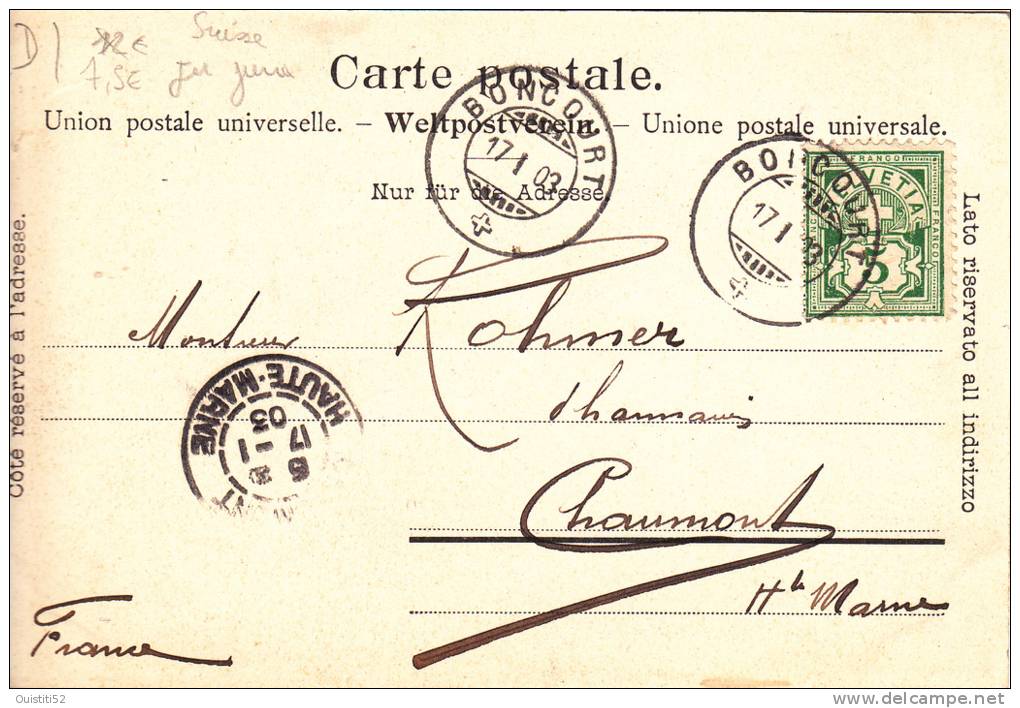 D
12 € Suisse
7,5 €
Carte postale.
Union postale universelle. – Weltpostverein. – Unione postale universale.
Nur für die Adresse.
BONCOURT
17.I 03
BONCOURT
17.I 03
FRANCO
HELVETIA
FRANCO
5
Côté réservé à l'adresse.
Lato riservato all indirizzo
Monsieur Kohmer
HAUTE-MARNE
17 - 1
03
Chaumont
Hte Marne
France
Ouistiti52
http://www.delcampe.net